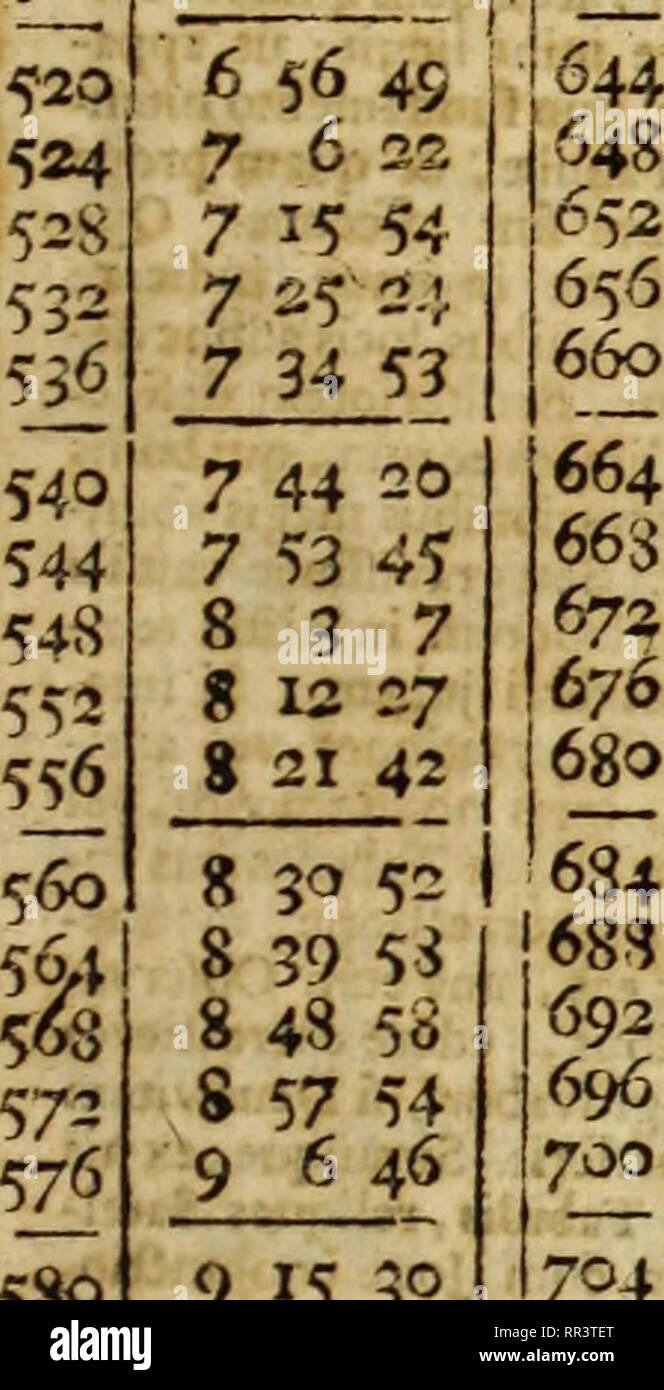 520 6 56 49 644
524 7 6 22 648
528 7 15 54 652
532 7 25 24 656
536 7 34 53 660
540 7 44 20 664
544 7 53 45 668
548 8 3 7 672
552 8 12 27 676
556 8 21 42 680
560 8 30 52 684
564 8 39 58 688
568 8 48 58 692
572 8 57 54 696
576 9 6 46 700
580 9 15 30 704
alamy
Image ID: RR3TET
www.alamy.com